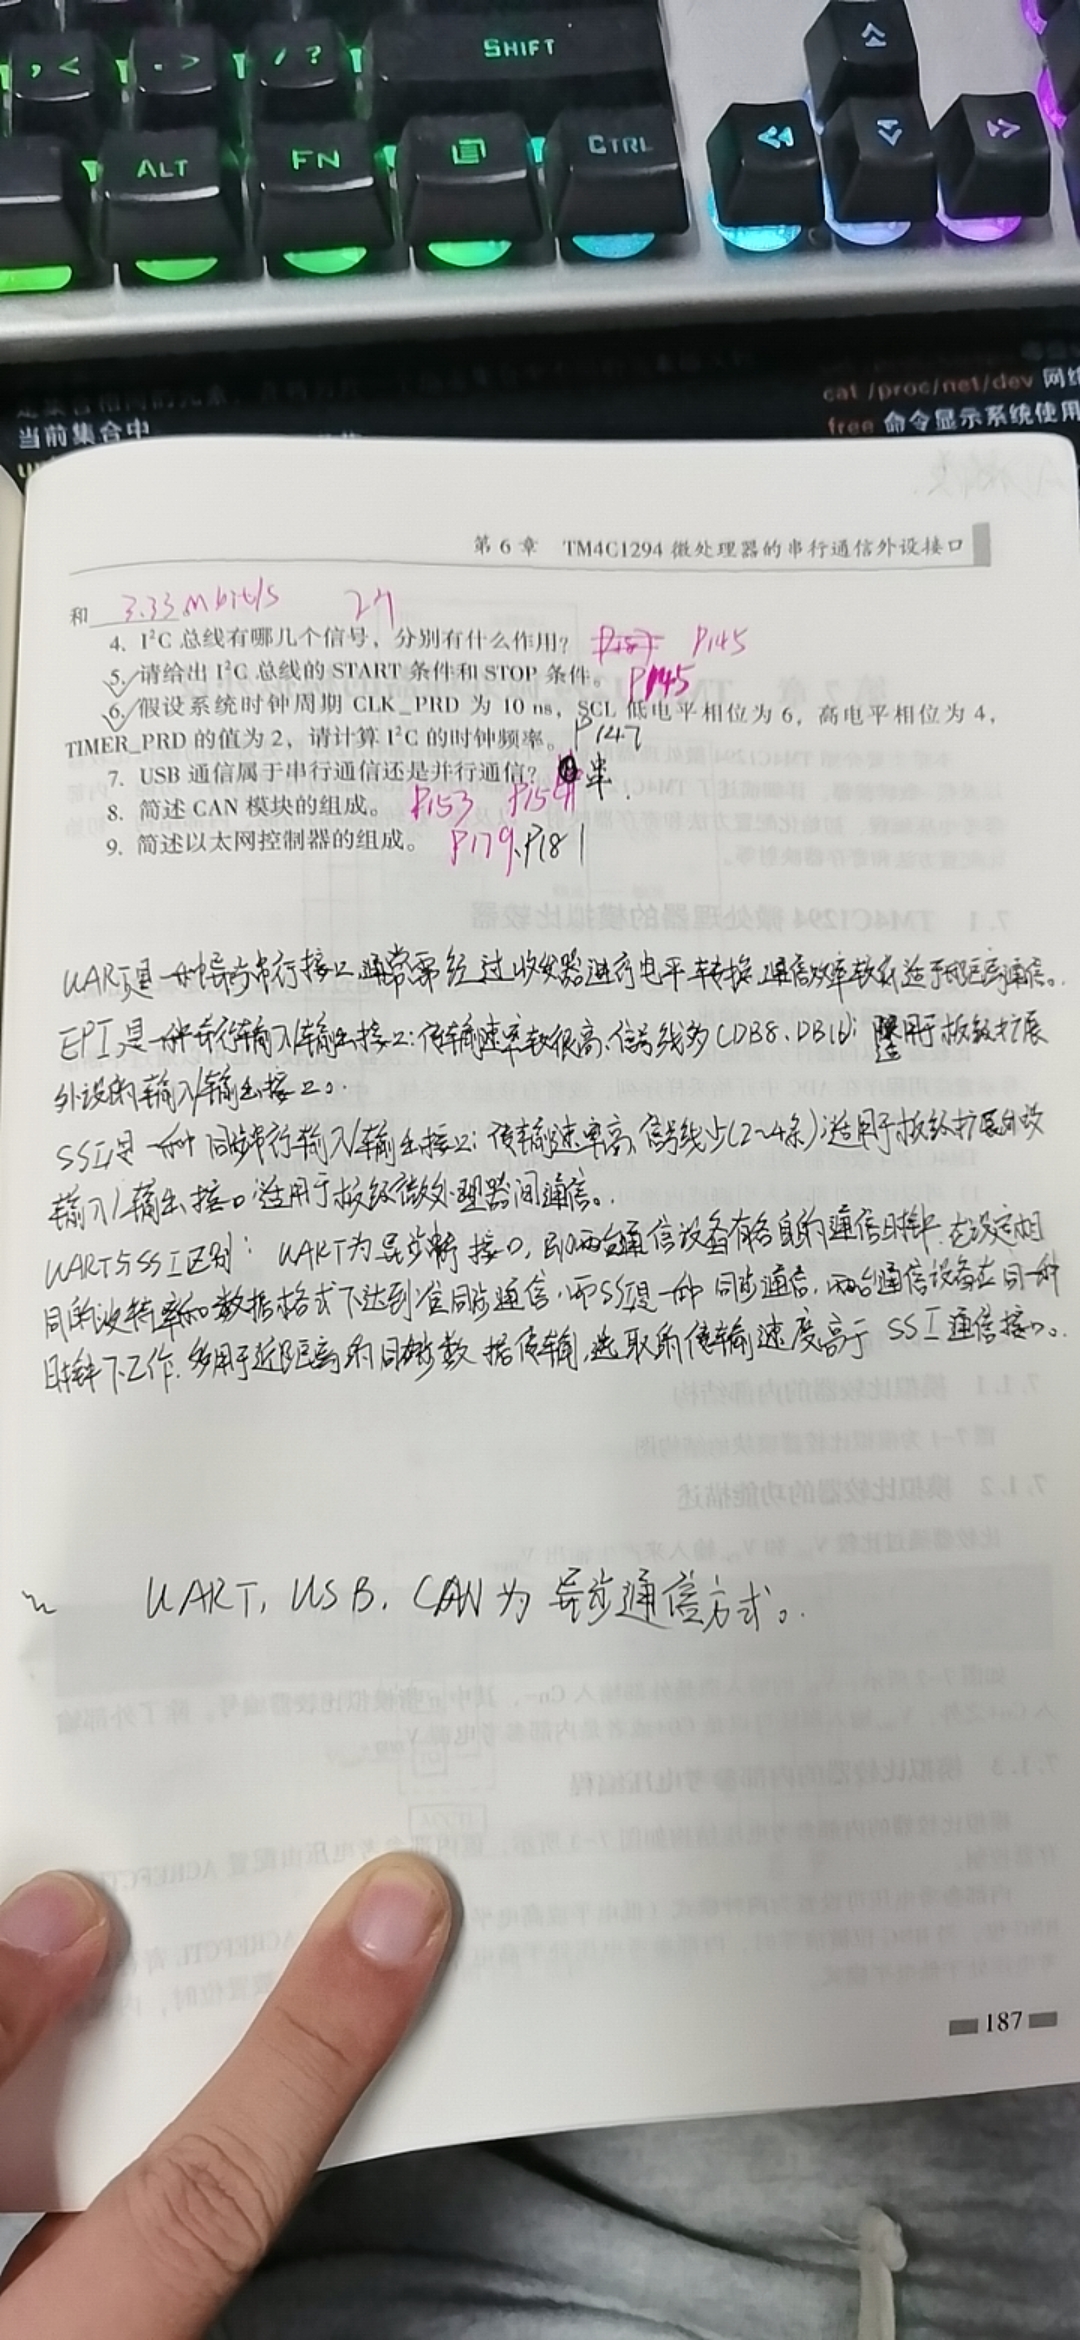 , <
. >
/ ?
SHIFT
ALT
FN
CTRL
cat /proc/net/dev 网络
当前集合中
free 命令显示系统使用
第 6 章 TM4C1294 微处理器的串行通信外设接口
和 3.33Mbit/s
4. I²C 总线有哪几个信号，分别有什么作用？ P145
5. 请给出 I²C 总线的 START 条件和 STOP 条件。 P145
6. 假设系统时钟周期 CLK_PRD 为 10 ns，SCL 低电平相位为 6，高电平相位为 4，
TIMER_PRD 的值为 2，请计算 I²C 的时钟频率。 P147
7. USB 通信属于串行通信还是并行通信？ 串
8. 简述 CAN 模块的组成。 P153 P154
9. 简述以太网控制器的组成。 P179、P181
UART是一种异步串行接口，通常需经过收发器进行电平转换，通信效率较低，适于短距离通信。
EPI是一种并行输入/输出接口：传输速率较很高、信号线多（DB8、DB16）；用于板级扩展
外设的输入/输出接口。
SSI是一种同步串行输入/输出接口；传输速率高，信号线少（2~4条）；适用于板级扩展外设
输入/输出接口；适用于板级微处理器间通信。
UART与SSI区别： UART为异步串行接口，即两台通信设备有各自的通信时钟，在设定相
同的波特率和数据格式下达到准同步通信，而SSI是一种同步通信，两台通信设备在同一种
时钟下工作，多用于近距离的同步数据传输，选取的传输速度高于 SSI 通信接口。
UART，USB，CAN为异步通信方式。
187